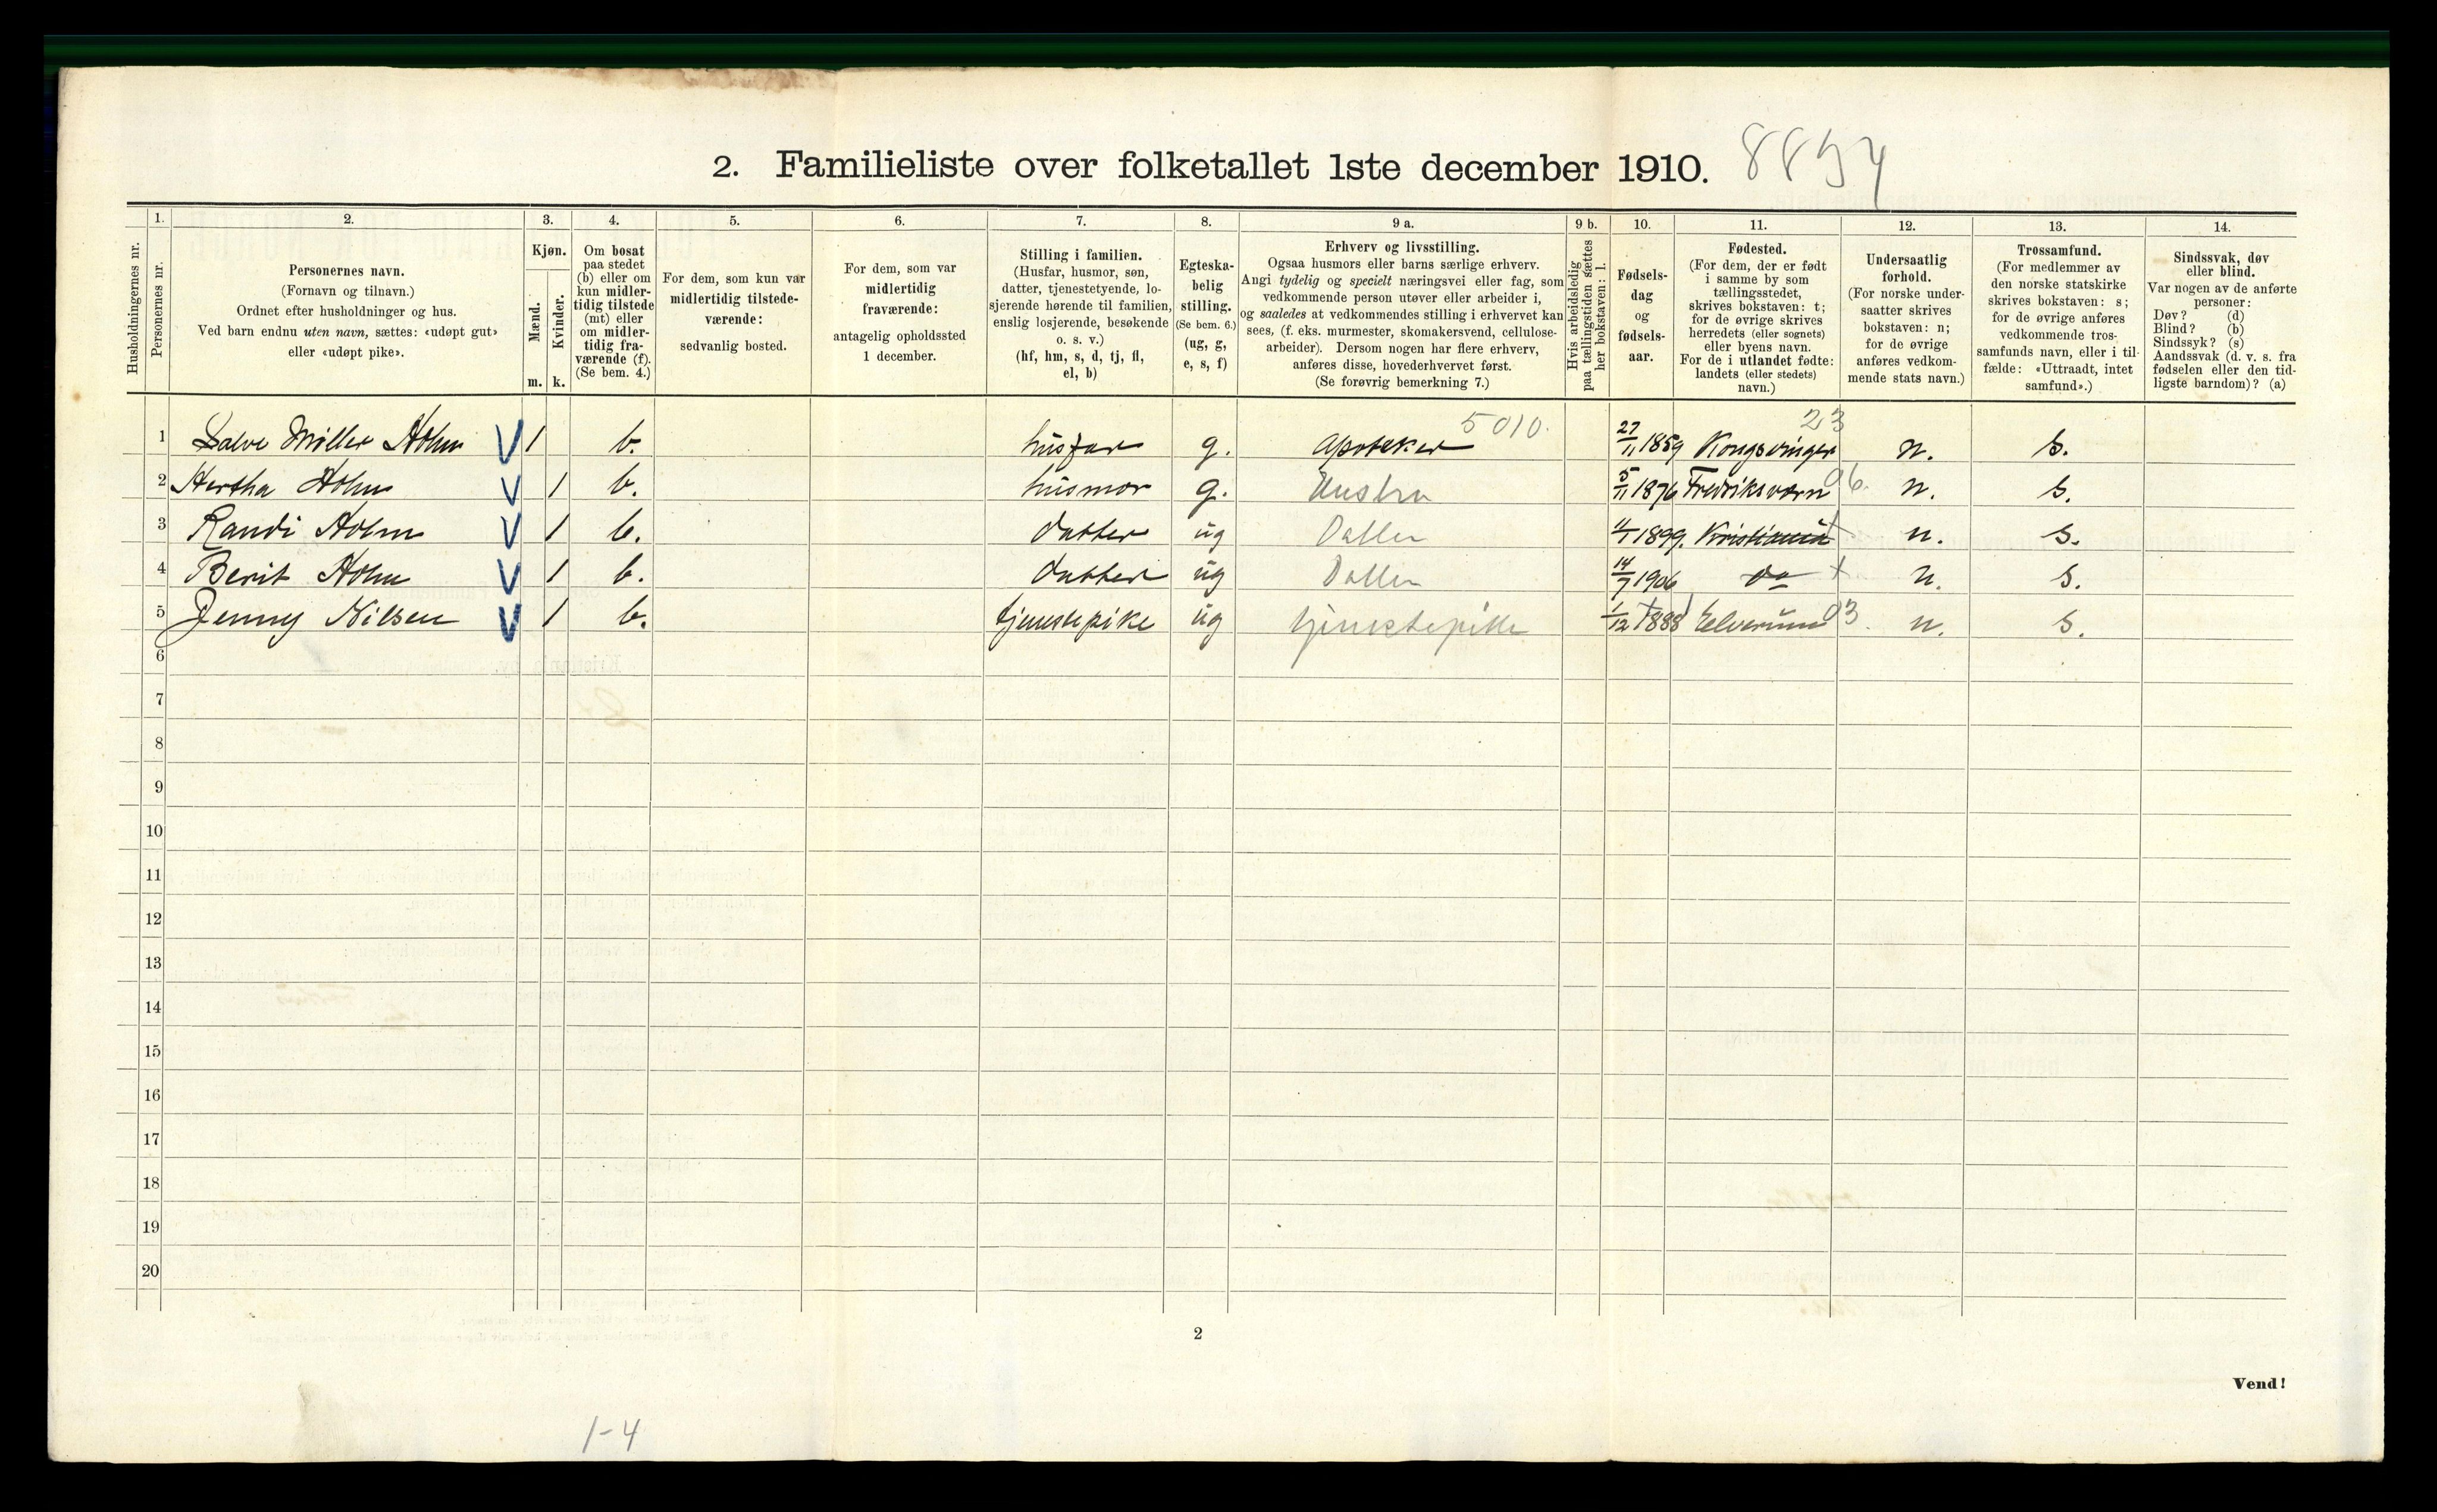 2. Familieliste over folketallet 1ste december 1910. 8894
Husholdningernes nr.
1.
Personernes nr.
2.
Personernes navn.
(Fornavn og tilnavn.)
Ordnet efter husholdninger og hus.
Ved barn endnu uten navn, sættes: «udøpt gut»
eller «udøpt pike».
3.
Kjøn.
Mænd.
Kvinder.
m. k.
4.
Om bosat
paa stedet
(b) eller om
kun midler-
tidig tilstede
(mt) eller
om midler-
tidig fra-
værende (f).
(Se bem. 4.)
5.
For dem, som kun var
midlertidig tilstede-
værende:
sedvanlig bosted.
6.
For dem, som var
midlertidig
fraværende:
antagelig opholdssted
1 december.
7.
Stilling i familien.
(Husfar, husmor, søn,
datter, tjenestetyende, lo-
sjerende hørende til familien,
enslig losjerende, besøkende
o. s. v.)
(hf, hm, s, d, tj, fl,
el, b)
8.
Egteska-
belig
stilling.
(Se bem. 6.)
(ug, g,
e, s, f)
9 a.
Erhverv og livsstilling.
Ogsaa husmors eller barns særlige erhverv.
Angi tydelig og specielt næringsvei eller fag, som
vedkommende person utøver eller arbeider i,
og saaledes at vedkommendes stilling i erhvervet kan
sees, (f. eks. murmester, skomakersvend, cellulose-
arbeider). Dersom nogen har flere erhverv,
anføres disse, hovederhvervet først.
(Se forøvrig bemerkning 7.)
9 b.
Hvis arbeidsledig
paa tællingstiden sættes
her bokstaven: l.
10.
Fødsels-
dag
og
fødsels-
aar.
11.
Fødested.
(For dem, der er født
i samme by som
tællingsstedet,
skrives bokstaven: t;
for de øvrige skrives
herredets (eller sognets)
eller byens navn.
For de i utlandet fødte:
landets (eller stedets)
navn.)
12.
Undersaatlig
forhold.
(For norske under-
saatter skrives
bokstaven: n;
for de øvrige
anføres vedkom-
mende stats navn.)
13.
Trossamfund.
(For medlemmer av
den norske statskirke
skrives bokstaven: s;
for de øvrige anføres
vedkommende tros-
samfunds navn, eller i til-
fælde: «Uttraadt, intet
samfund».)
14.
Sindssvak, døv
eller blind.
Var nogen av de anførte
personer:
Døv? (d)
Blind? (b)
Sindssyk? (s)
Aandssvak (d. v. s. fra
fødselen eller den tid-
ligste barndom)? (a)
5010. 23
1 Salve Møller Holm V 1 b. husfar g. Apoteker 27/11 1859 Kongsvinger n. s.
2 Hertha Holm V 1 b. husmor g. Hustru 5/11 1876 Fredriksværn 06. n. s.
3 Randi Holm V 1 b. datter ug Datter 11/1 1899. Kristiania t n. s.
4 Berit Holm V 1 b. datter ug Datter 14/7 1906 do t n. s.
5 Jenny Nilsen V 1 b. tjenestepike ug tjenestepike 1/12 1888 Elverum 03. n. s.
6
7
8
9
10
11
12
13
14
15
16
17
18
19
20
2
Vend!
1-4